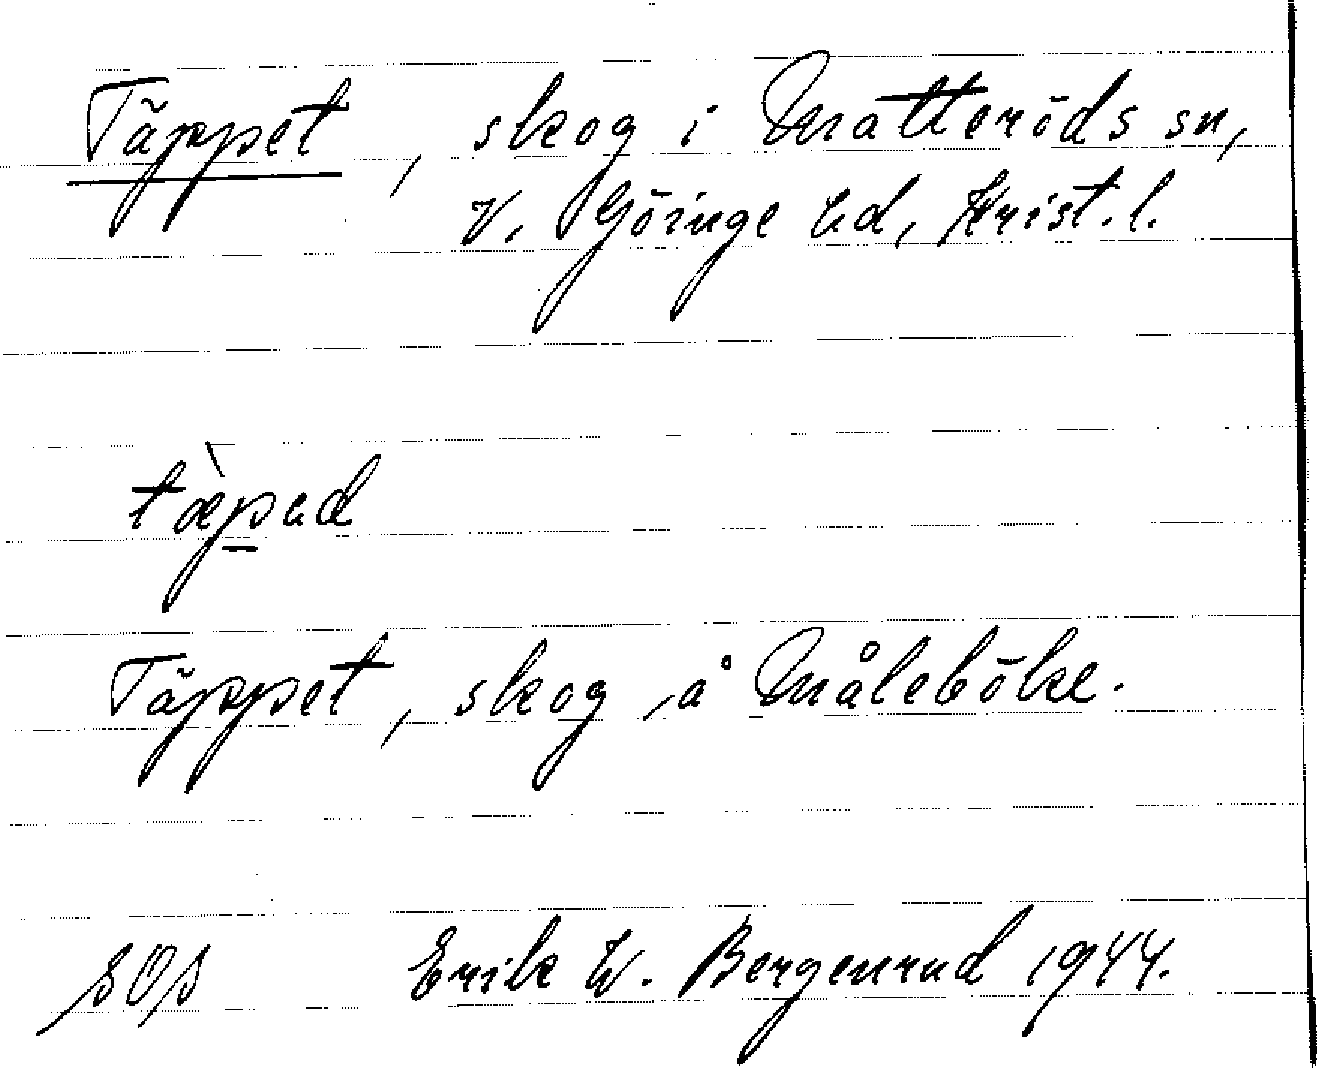 Täppet, skog i Matteröds sn,
V. Göinge hd, Krist. l.
tæ̀pəd
Täppet, skog å Målebōke.
SOS Erik W. Bergenrud 1944.